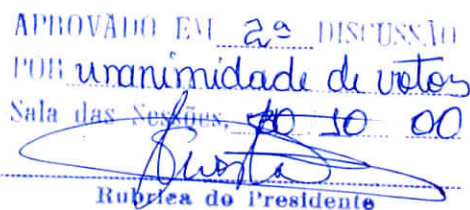 APROVADO EM 2ª DISCUSSÃO
POR unanimidade de votos
Sala das Sessões, 10 10 00
Rubrica do Presidente